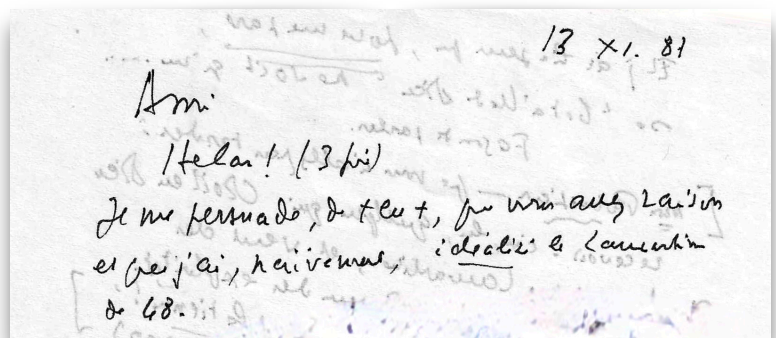 13 XI. 81
Ami
Helas! (3 fois)
Je me persuade, de + en +, que vous avez raison
et que j'ai, naivement, idéalisé le Lamartine
de 48.